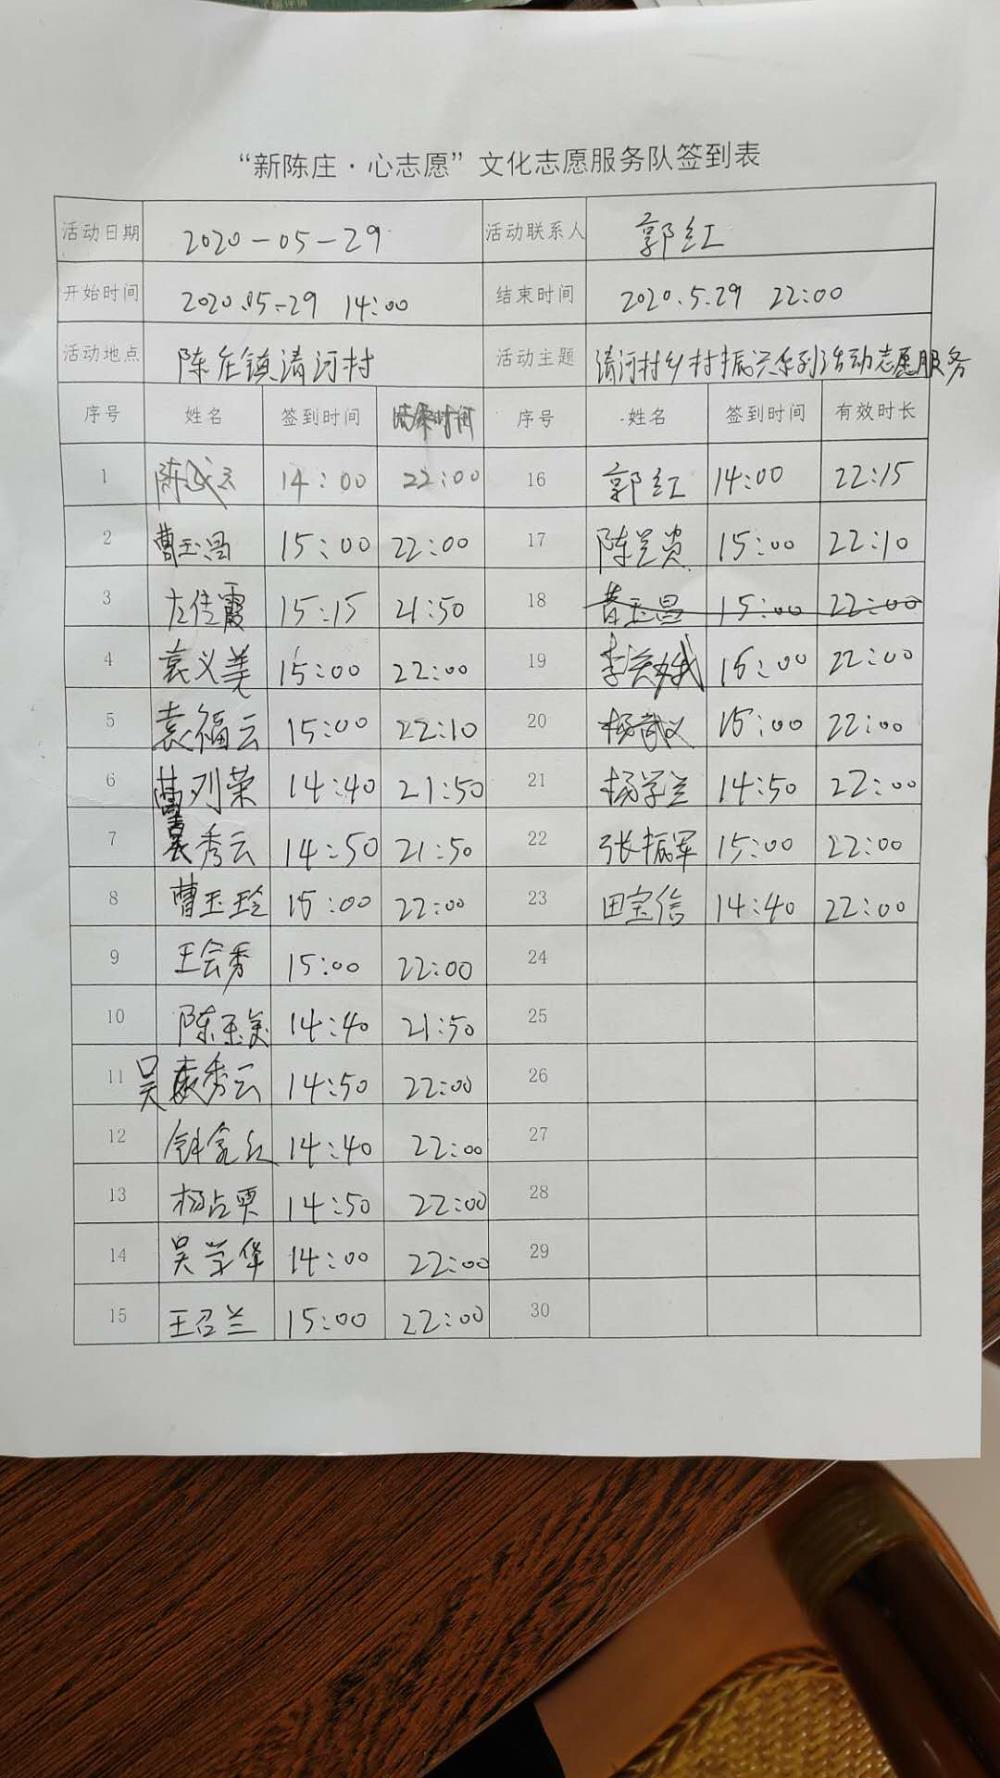 “新陈庄·心志愿”文化志愿服务队签到表
活动日期 2020-05-29 活动联系人 郭红
开始时间 2020.05-29 14:00 结束时间 2020.5.29 22:00
活动地点 陈庄镇清河村 活动主题 清河村乡村振兴系列活动志愿服务
序号 姓名 签到时间 结束时间 序号 姓名 签到时间 有效时长
1 14:00 22:00 16 郭红 14:00 22:15
2 曹玉昌 15:00 22:00 17 陈兰贵 15:00 22:10
3 左佳霞 15:15 21:50 18 曹玉昌 15:00 22:00
4 袁义美 15:00 22:00 19 15:00 22:00
5 袁福云 15:00 22:10 20 杨武义 15:00 22:00
6 列荣 14:40 21:50 21 杨学兰 14:50 22:00
7 秀云 14:50 21:50 22 张振军 15:00 22:00
8 曹玉玲 15:00 22:00 23 田宝信 14:40 22:00
9 王会秀 15:00 22:00 24
10 陈玉美 14:40 21:50 25
11 吴秀云 14:50 22:00 26
12 14:40 22:00 27
13 杨占 14:50 22:00 28
14 吴学华 14:00 22:00 29
15 王召兰 15:00 22:00 30